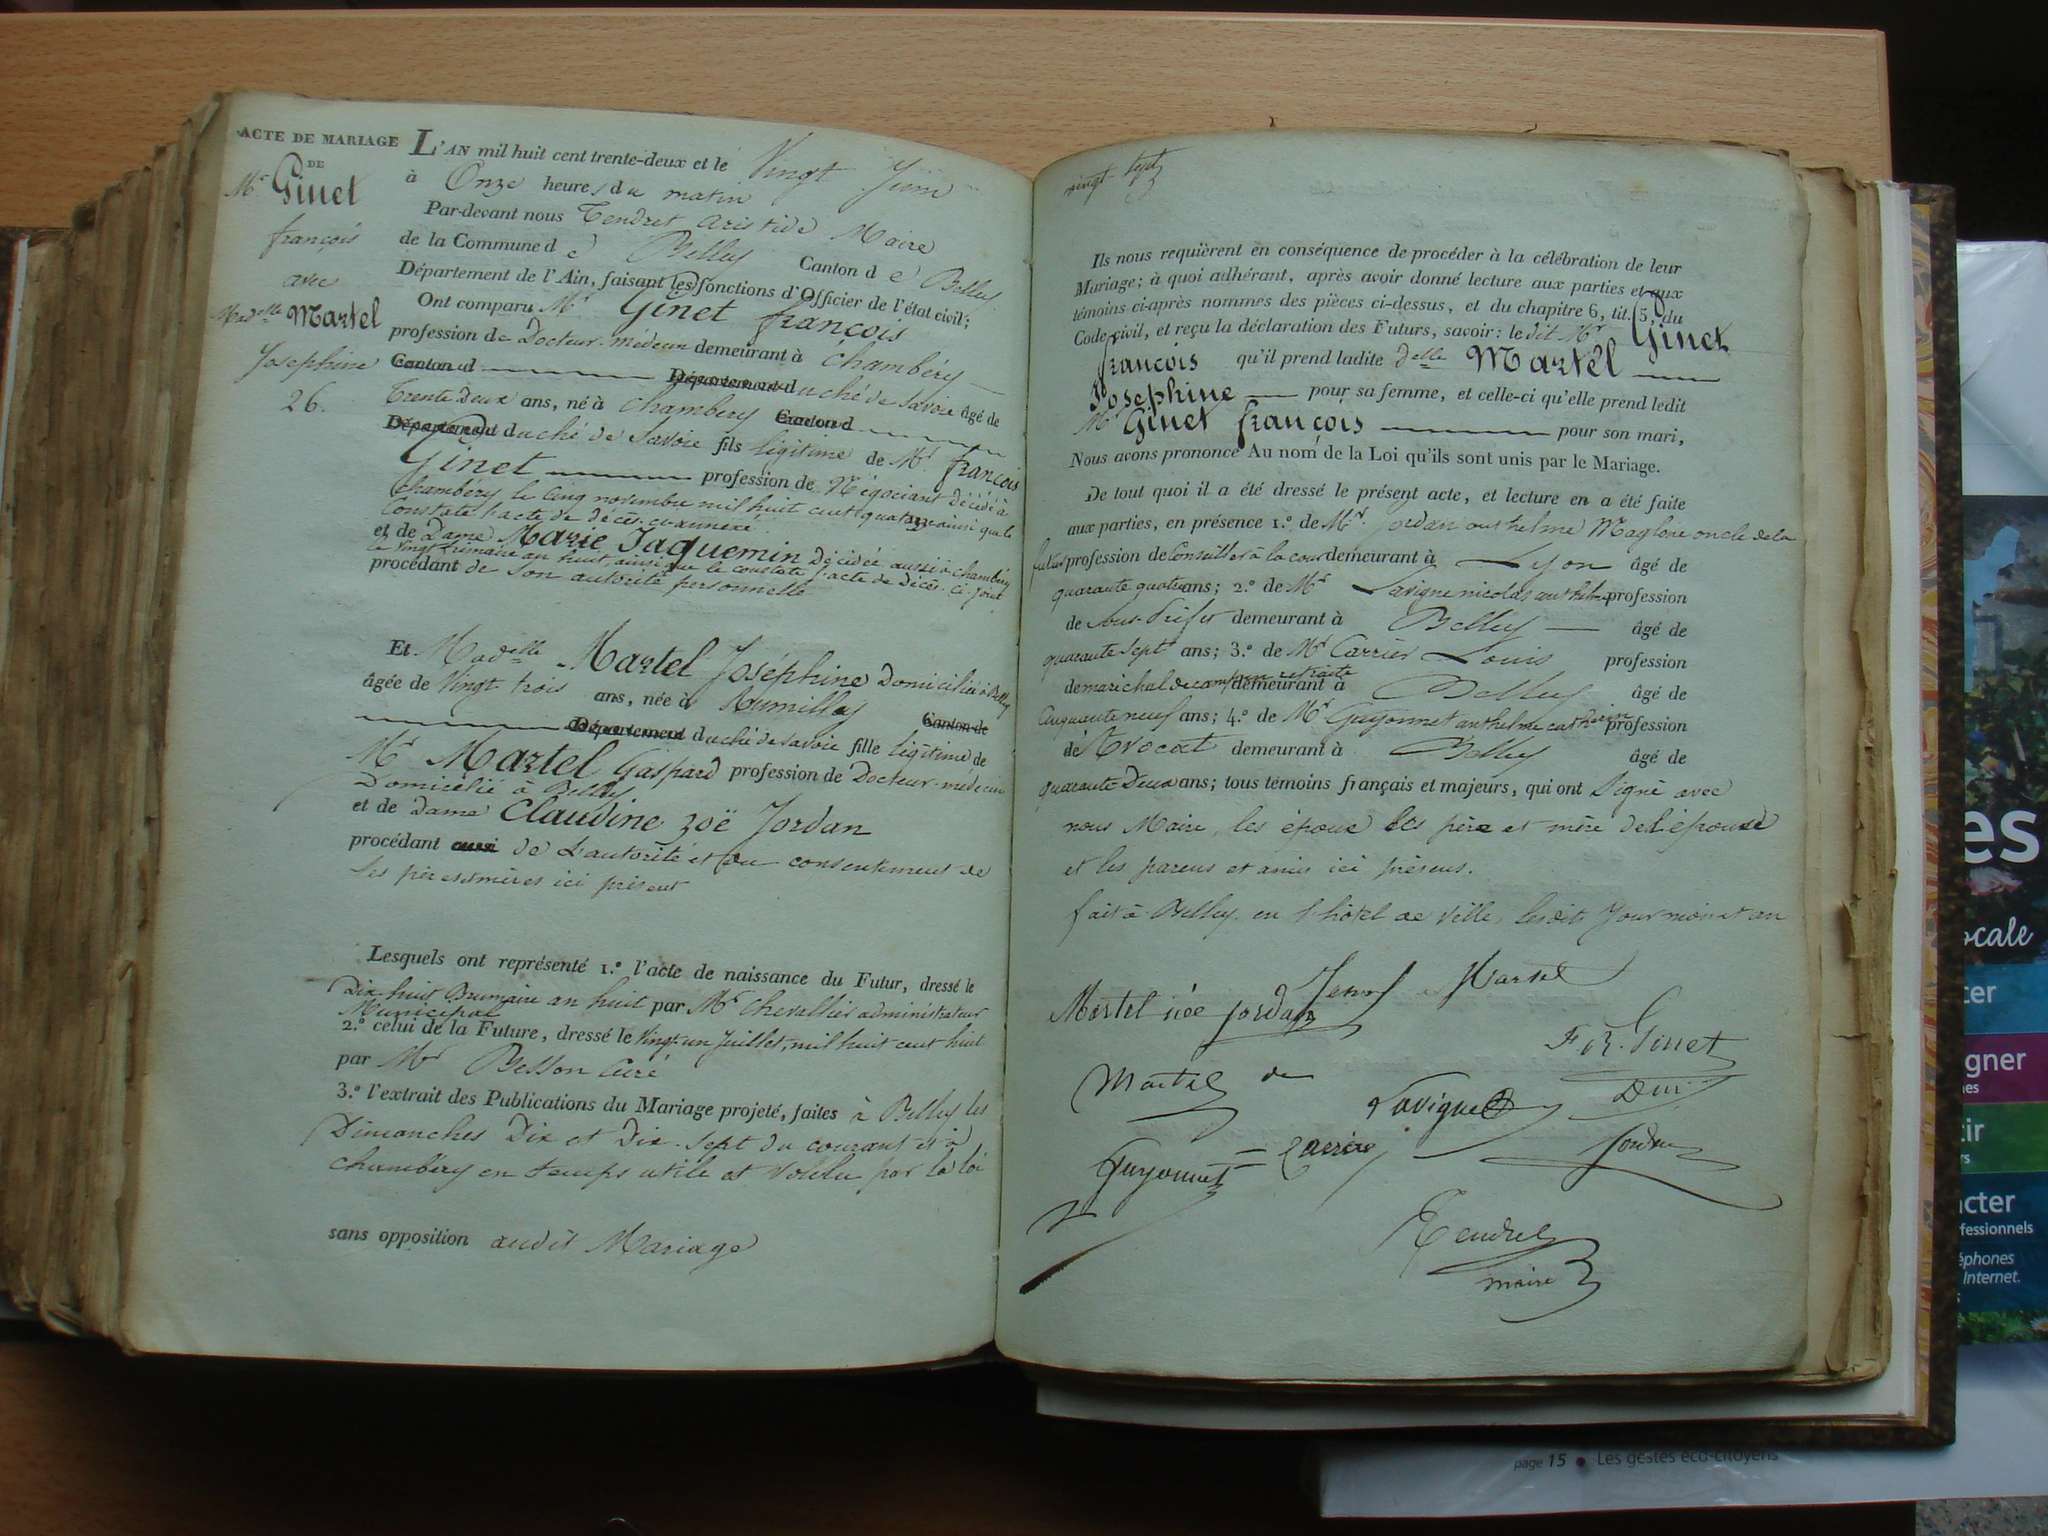 ACTE DE MARIAGE
DE
Mr. Ginet
françois
avec
Madelle Martel
Josephine
26.
L'AN mil huit cent trente-deux et le Vingt Juin
à Onze heures du matin
Par-devant nous Tendret Aristide Maire
de la Commune de Belley Canton de Belley
Département de l'Ain, faisant les fonctions d'Officier de l'état civil;
Ont comparu Mr. Ginet françois
profession de Docteur-médecin demeurant à Chambéry
Canton d Département duché de Savoie âgé de
Trente Deux ans, né à Chambéry Canton d
Département duché de Savoie fils légitime de Mr. françois
Ginet profession de Négociant décédé à
Chambéry le cinq novembre mil huit cent quatorze ainsi que le
constate l'acte de décès ci-annexé
et de Dame Marie Jaquemin décédée aussi à Chambéry
le vingt frimaire an huit, ainsi que le constate l'acte de décès ci-joint
procédant de son autorité personnelle
Et Madelle Martel Joséphine Domiciliée à Belley
âgée de Vingt trois ans, née à Rumilly Canton de
Département duché de Savoie fille légitime de
Mr Martel Gaspard profession de Docteur-médecin
Domicilié à Belley
et de Dame Claudine Zoë Jordan
procédant aussi de L'autorité et du consentement de
ses père et mères ici présent
Lesquels ont représenté 1.º l'acte de naissance du Futur, dressé le
Dix huit Brumaire an huit par Mr Chevallier administrateur
Municipal
2.º celui de la Future, dressé le Vingt-un Juillet, mil huit cent huit
par Mr Besson Curé
3.º l'extrait des Publications du Mariage projeté, faites à Belley les
Dimanches Dix et Dix-sept du courant et à
Chambéry en temps utile et voulu par la loi
sans opposition audit Mariage
vingt-sept
Ils nous requièrent en conséquence de procéder à la célébration de leur
Mariage; à quoi adhérant, après avoir donné lecture aux parties et aux
témoins ci-après nommés des pièces ci-dessus, et du chapitre 6, tit. 5, du
Code civil, et reçu la déclaration des Futurs, savoir: le dit Mr Ginet
françois qu'il prend ladite delle Martel
Josephine pour sa femme, et celle-ci qu'elle prend ledit
Mr Ginet françois pour son mari,
Nous avons prononcé Au nom de la Loi qu'ils sont unis par le Mariage.
De tout quoi il a été dressé le présent acte, et lecture en a été faite
aux parties, en présence 1.º de Mr. Jordan anthelme Magloire oncle de la
future profession de Conseiller à la cour demeurant à Lyon âgé de
quarante quatre ans; 2.º de Mr Lavigne nicolas anthelme profession
de Sous-Préfet demeurant à Belley âgé de
quarante sept ans; 3.º de Mr Carrier Louis profession
de marechal de camp en retraite demeurant à Belley âgé de
Cinquante neuf ans; 4.º de Mr Guyonnet anthelme profession
de Avocat demeurant à Belley âgé de
quarante Deux ans; tous témoins français et majeurs, qui ont Signé avec
nous Maire, les époux les père et mère de l'épouse
et les parens et amis ici présens.
fait à Belley en l'hôtel de ville, lesdit Jour mois et an
Martel
Martel née Jordan
F. R. Ginet
Martel dm
Lavigne
Dm
Guyonnet
Carrier
Jordan
Tendret
maire
es
ocale
cter
fessionnels
éphones
Internet.
page 15 • Les gestes éco-citoyens